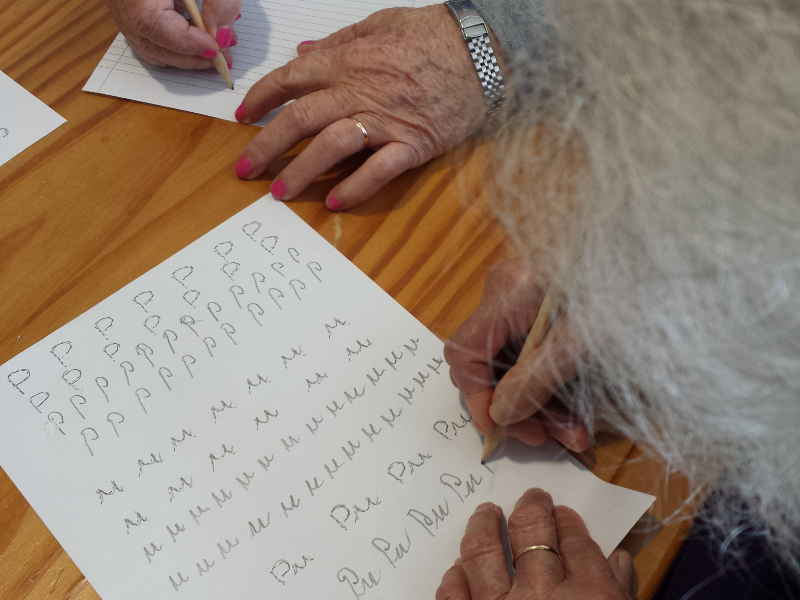 P P P P P P P
P P P P P P P
P P P P P P P P P P P P
P P P P P P P P P P P
u u u u u u u
u u u u u u
u u u u u u u u u u u u u
u u u u u u u u u u u u u
Pu Pu Pu Pu
Pu Pu Pu Pu